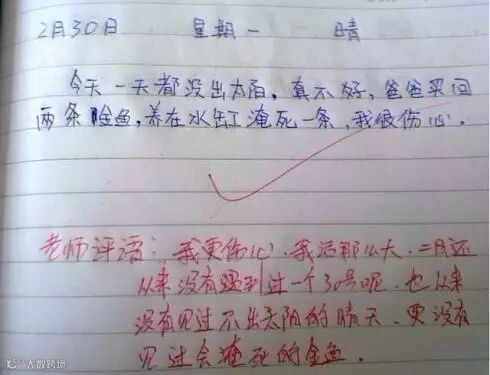 2月30日 星期一 晴
今天一天都没出太阳,真不好,爸爸买回
两条金鱼,养在水缸淹死一条,我很伤心。
老师评语:我更伤心.我活那么大.二月还
从来没有遇到过一个30号呢.也从来
没有见过不出太阳的晴天.更没有
见过会淹死的金鱼.
大数跨境